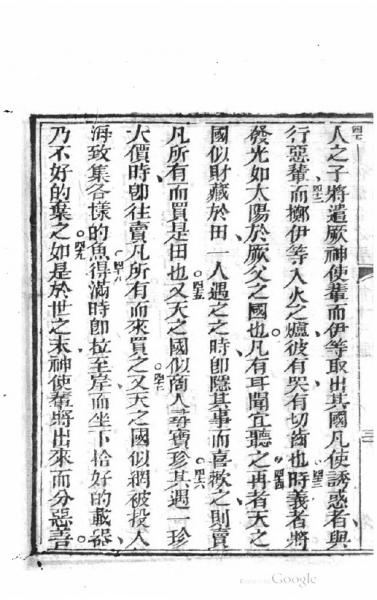 人之子將遣厥神使輩而伊等取出其國凡使誘惑者與
行惡輩而擲伊等入火之爐彼有哭有切齒也時義者將
發光如太陽於厥父之國也凡有耳聞宜聽之再者天之
國似財藏於田一人遇之之時即隱其事而喜歡之則賣
凡所有而買是田也又天之國似商人尋寶珍其遇一珍
大價時即往賣凡所有而來買之又天之國似網被投入
海致集各樣的魚得滿時即拉至岸而坐下恰好的載器
乃不好的棄之如是於世之末神使輩將出來而分惡善
三
Google